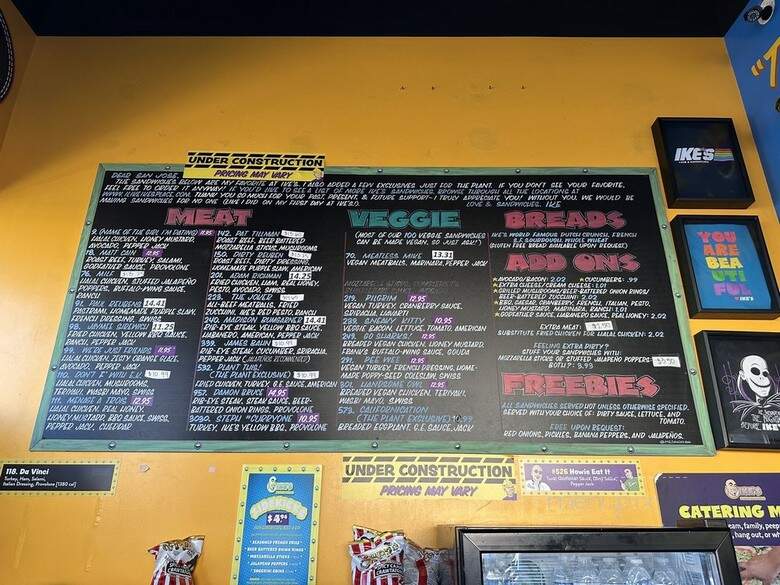 UNDER CONSTRUCTION
PRICING MAY VARY
DEAR SAN JOSE,
THE SANDWICHES BELOW ARE MY FAVORITE AT IKE'S. I ALSO ADDED A FEW EXCLUSIVES JUST FOR THE PLANT. IF YOU DON'T SEE YOUR FAVORITE,
FEEL FREE TO ORDER IT ANYWAY! IF YOU'D LIKE TO SEE A LIST OF MORE IKE'S SANDWICHES, BROWSE THROUGH ALL THE LOCATIONS AT
THANK YOU SO MUCH FOR YOUR PAST, PRESENT, & FUTURE SUPPORT-I TRULY APPRECIATE YOU! WITHOUT YOU, WE WOULD BE
MAKING SANDWICHES FOR NO ONE (LIKE I DID ON MY FIRST DAY AT IKE'S). LOVE & SANDWICHES, IKE
MEAT
9. (NAME OF THE GIRL I'M DATING)
HALAL CHICKEN, HONEY MUSTARD,
AVOCADO, PEPPER JACK
18. MATT CAIN 12.95
ROAST BEEF, TURKEY, SALAMI,
GODFATHER SAUCE, PROVOLONE
HALAL CHICKEN, STUFFED JALAPEÑO
POPPERS, BUFFALO-WING SAUCE,
RANCH
PAUL REUBENS 14.41
PASTRAMI, HOMEMADE PURPLE SLAW,
FRENCH DRESSING, SWISS
11.25
FRIED CHICKEN, YELLOW BBQ SAUCE,
RANCH, PEPPER JACK
99. WE'RE JUST FRIENDS
HALAL CHICKEN, ZESTY ORANGE GLAZE,
AVOCADO, PEPPER JACK
DON'T E WILL EV $10.99
HALAL CHICKEN, MUSHROOMS,
TERIYAKI, WASABI MAYO, SWISS
MENAGE A TROIS 12.95
HALAL CHICKEN, REAL HONEY,
HONEY MUSTARD, BBQ SAUCE, SWISS,
PEPPER JACK, CHEDDAR
142. PAT TILLMAN
ROAST BEEF, BEER BATTERED
MOZZARELLA STICKS, MUSHROOMS
150. DIRTY REUBEN
ROAST BEEF, DIRTY DRESSING,
HOMEMADE PURPLE SLAW, AMERICAN
202. ADAM RICHMAN 14.25
FRIED CHICKEN, HAM, REAL HONEY,
PESTO, AVOCADO, SWISS
228. THE JOKER
ALL-BEEF MEATBALLS, FRIED
ZUCCHINI, IKE'S RED PESTO, RANCH
MADISON BUMGARNER 14.41
RIB-EYE STEAK, YELLOW BBQ SAUCE,
HABANERO, AMERICAN, PEPPER JACK
339. JAMES BALIN
RIB-EYE STEAK, CUCUMBER, SRIRACHA,
PEPPER JACK
592. PLANT THIS!
(THE PLANT EXCLUSIVE) $10.99
FRIED CHICKEN, TURKEY, G.E. SAUCE, AMERICAN
957. DAMON BRUCE 14.95
RIB-EYE STEAK, STEAK SAUCE, BEER-
BATTERED ONION RINGS, PROVOLONE
3030. STEPH "CURRY"ONE 10.95
TURKEY, IKE'S YELLOW BBQ, PROVOLONE
VEGGIE
(MOST OF OUR 700 VEGGIE SANDWICHES
CAN BE MADE VEGAN, SO JUST ASK!)
70. MEATLESS MIKE 13.31
VEGAN MEATBALLS, MARINARA, PEPPER JACK
219. PILGRIM 12.95
VEGAN TURKEY, CRANBERRY SAUCE,
SRIRACHA, HAVARTI
ANGRY KITTY 10.95
VEGGIE BACON, LETTUCE, TOMATO, AMERICAN
GO SHARKS! 12.95
BREADED VEGAN CHICKEN, HONEY MUSTARD,
FRANK'S BUFFALO-WING SAUCE, GOUDA
PEE WEE 12.95
VEGAN TURKEY, FRENCH DRESSING, HOME-
MADE POPPY-SEED COLESLAW, SWISS
HANDSOME OWL 12.95
BREADED VEGAN CHICKEN, TERIYAKI,
WASABI MAYO, SWISS
573. CALIFORNICATION
(THE PLANT EXCLUSIVE) 10.99
BREADED EGGPLANT, G.E. SAUCE, JACK
BREADS
IKE'S WORLD FAMOUS DUTCH CRUNCH, FRENCH
S.F. SOURDOUGH, WHOLE WHEAT
(GLUTEN FREE BREAD AVAILABLE UPON REQUEST)
ADD ONS
AVOCADO/BACON: 2.02 CUCUMBERS: .99
EXTRA CHEESE/CREAM CHEESE: 1.01
BREADED MUSHROOMS/BEER-BATTERED ONION RINGS/
BEER-BATTERED ZUCCHINI: 2.02
BBQ, CAESAR, CRANBERRY, FRENCH, ITALIAN, PESTO,
HONEY MUSTARD, MARINARA, RANCH: 1.01
GODFATHER SAUCE, HABANERO SAUCE, REAL HONEY: 2.02
EXTRA MEAT:
SUBSTITUTE FRIED CHICKEN FOR HALAL CHICKEN: 2.02
FEELING EXTRA DIRTY?
STUFF YOUR SANDWICHES WITH:
MOZZARELLA STICKS OR STUFFED JALAPEÑO POPPERS:
BOTH?: 3.99
FREEBIES
ALL SANDWICHES SERVED HOT UNLESS OTHERWISE SPECIFIED.
SERVED WITH YOUR CHOICE OF: DIRTY SAUCE, LETTUCE, AND
TOMATO.
FREE UPON REQUEST:
RED ONIONS, PICKLES, BANANA PEPPERS, AND JALAPEÑOS.
IKE'S
YOU
ARE
BEA
UTI
FUL
IKE'S
118. Da Vinci
Turkey, Ham, Salami,
Italian Dressing, Provolone [1380 cal]
$4.94
SEASONED FRENCH FRIES
BEER BATTERED ONION RINGS
MOZZARELLA STICKS
JALAPENO POPPERS
ZUCCHINI
UNDER CONSTRUCTION
PRICING MAY VARY
#526 Howie Eat It
Pepper Jack
CATERING M
eam, family, peep
hang out, or wh